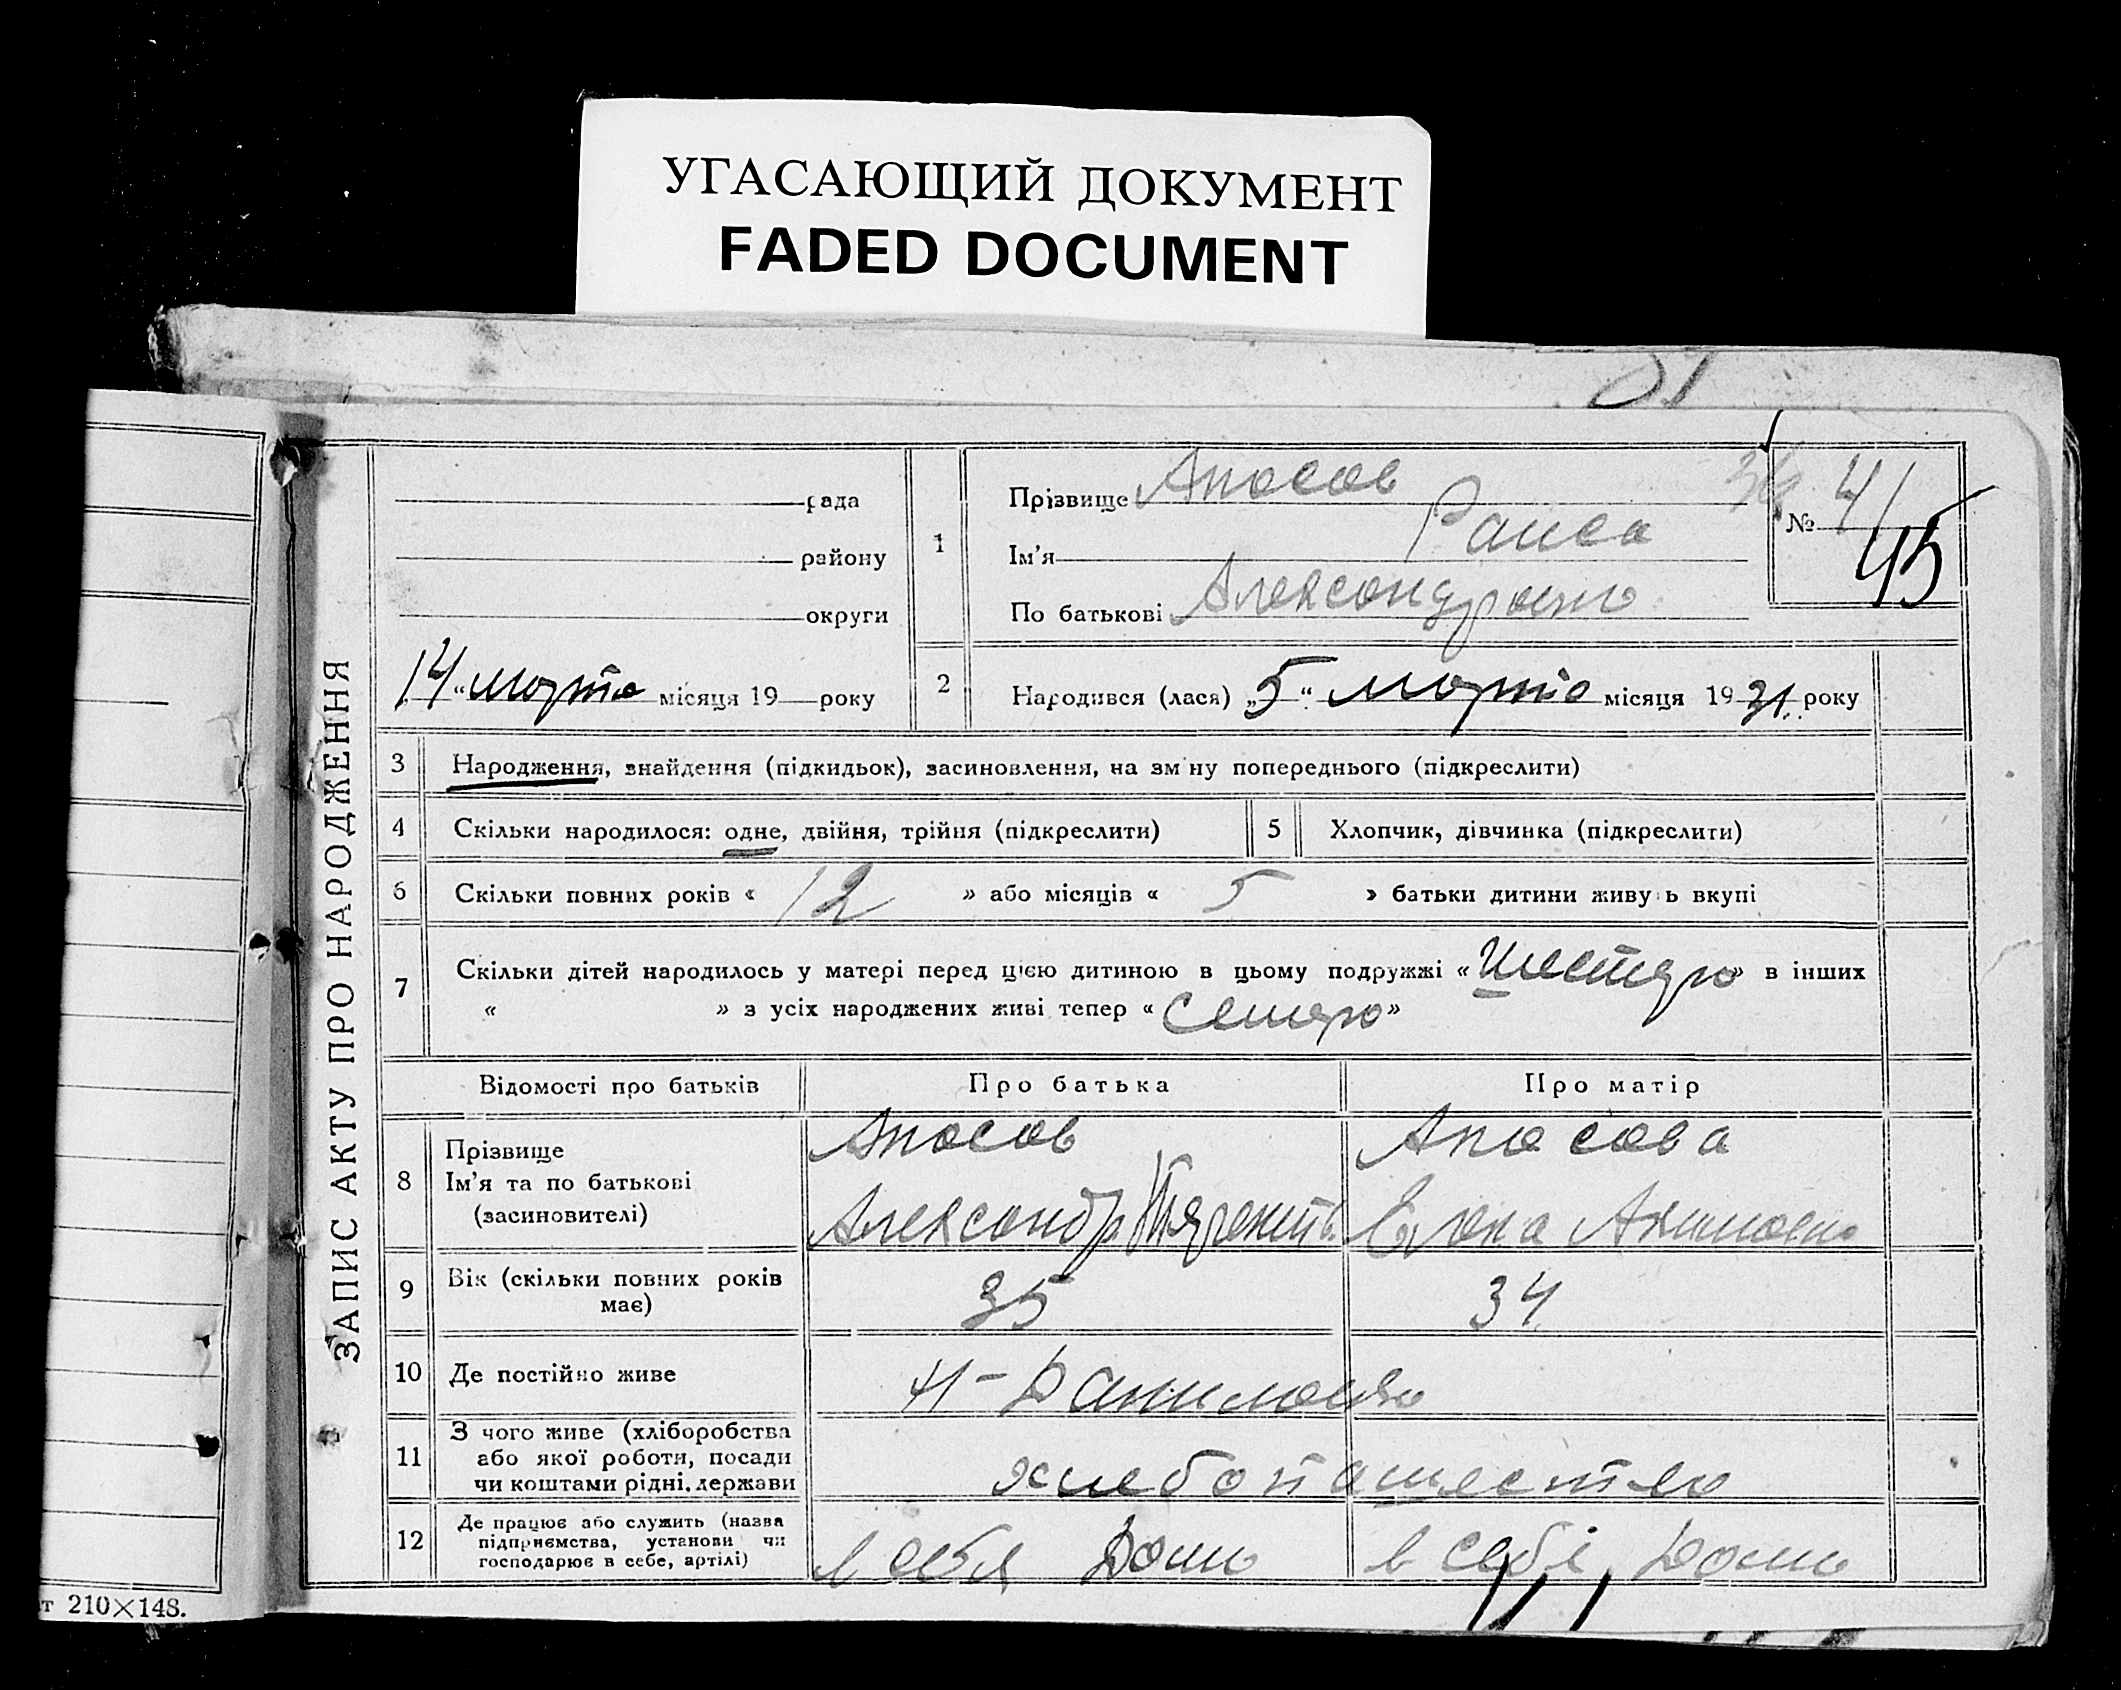 УГАСАЮЩИЙ ДОКУМЕНТ
FADED DOCUMENT
31
ЗАПИС АКТУ ПРО НАРОДЖЕННЯ
рада
району
округи
14 "марта місяця 19 року
1
Прізвище Апасов
Ім'я Раиса
По батькові
№ 41
45
2
Народився (лася) „5" марта місяця 1931 року
3 Народження, знайдення (підкидьок), засиновлення, на зміну попереднього (підкреслити)
4 Скільки народилося: одне, двійня, трійня (підкреслити)
5 Хлопчик, дівчинка (підкреслити)
6 Скільки повних років « 12 » або місяців « 5 » батьки дитини живуть вкупі
7 Скільки дітей народилось у матері перед цією дитиною в цьому подружжі « » в інших
« » з усіх народжених живі тепер « »
Відомості про батьків
Про батька
Про матір
8 Прізвище
Ім'я та по батькові
(засновителі)
Апасов
Александр
Апасова
Елена
9 Вік (скільки повних років
має)
35
34
10 Де постійно живе
Н-
11 З чого живе (хліборобства
або якої роботи, посади
чи коштами рідні, держави
12 Де працює або служить (назва
підприємства, установи чи
господарює в себе, артілі)
в себя дома
в себі дома
т 210×148.